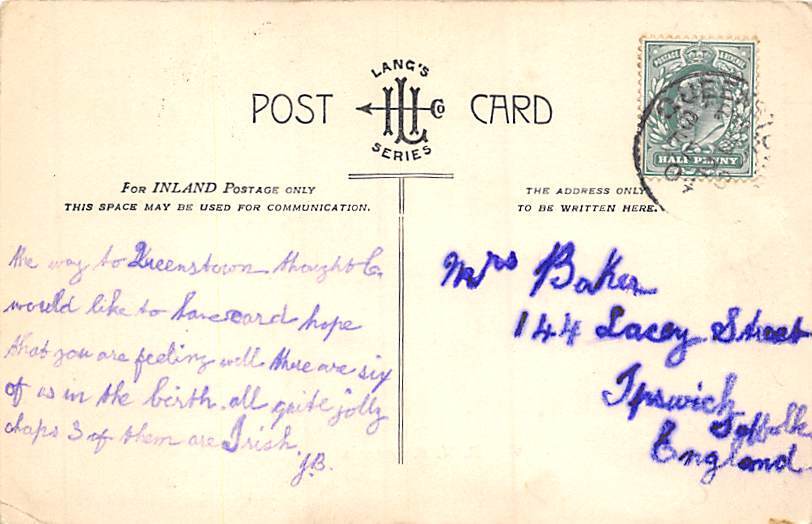 LANG'S
POST CARD
LHL Co
SERIES
FOR INLAND POSTAGE ONLY
THIS SPACE MAY BE USED FOR COMMUNICATION.
THE ADDRESS ONLY
TO BE WRITTEN HERE.
POSTAGE REVENUE
HALF PENNY
the way to Queenstown thought
would like to have card hope
that you are feeling well there are six
of us in the birth. all quite jolly
chaps 3 of them are Irish.
J.B.
Mrs Baker
144 Lacey Street
Ipswich
Suffolk
England